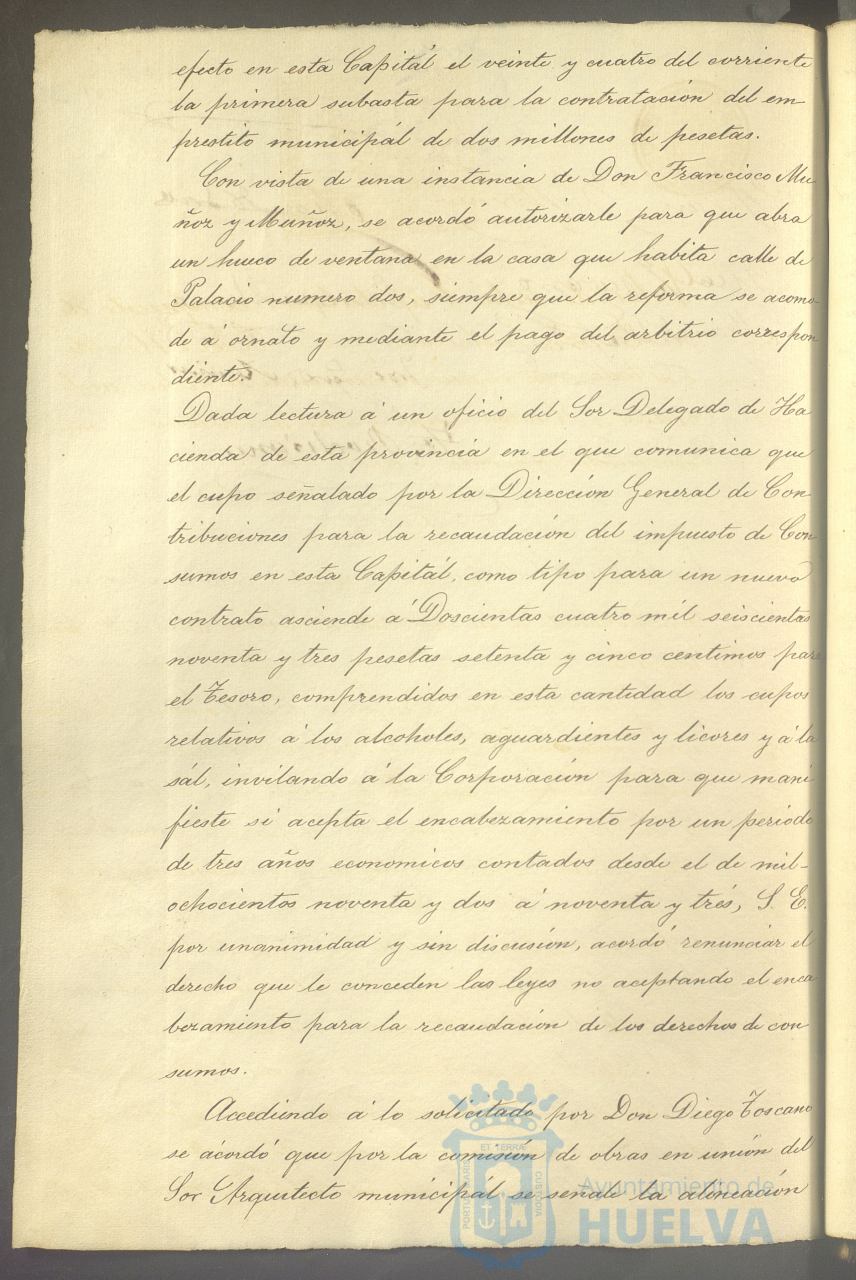 efecto en esta Capitál el veinte y cuatro del corriente
la primera subasta para la contratación del em-
prestito municipál de dos millones de pesetas.
Con vista de una instancia de Don Francisco Mu
ñoz y Muñoz, se acordó autorizarle para que abra
un hueco de ventana en la casa que habita calle de
Palacio numero dos, siempre que la reforma se acomo-
de á ornato y mediante el pago del arbitrio correspon
diente.
Dada lectura á un oficio del Sor Delegado de Ha
cienda de esta provincia en el que comunica que
el cupo señalado por la Dirección General de Con
tribuciones para la recaudación del impuesto de Con
sumos en esta Capitál, como tipo para un nuevo
contrato asciende á Doscientas cuatro mil seiscientas
noventa y tres pesetas setenta y cinco centimos para
el Tesoro, comprendidos en esta cantidad los cupos
relativos á los alcoholes, aguardientes y licores y á la
sál, invitando á la Corporación para que mani
fieste si acepta el encabezamiento por un periodo
de tres años economicos contados desde el de mil-
ochocientos noventa y dos á noventa y trés, S. E.
por unanimidad y sin discusión, acordó renunciar el
derecho que le conceden las leyes no aceptando el enca
bezamiento para la recaudación de los derechos de con
sumos.
Accediendo á lo solicitado por Don Diego Toscano
se acordó que por la comisión de obras en unión del
Sor Arquitecto municipál se señale la alineación
PORTUS MARIS ET TERRÆ CUSTODIA
Ayuntamiento de
HUELVA